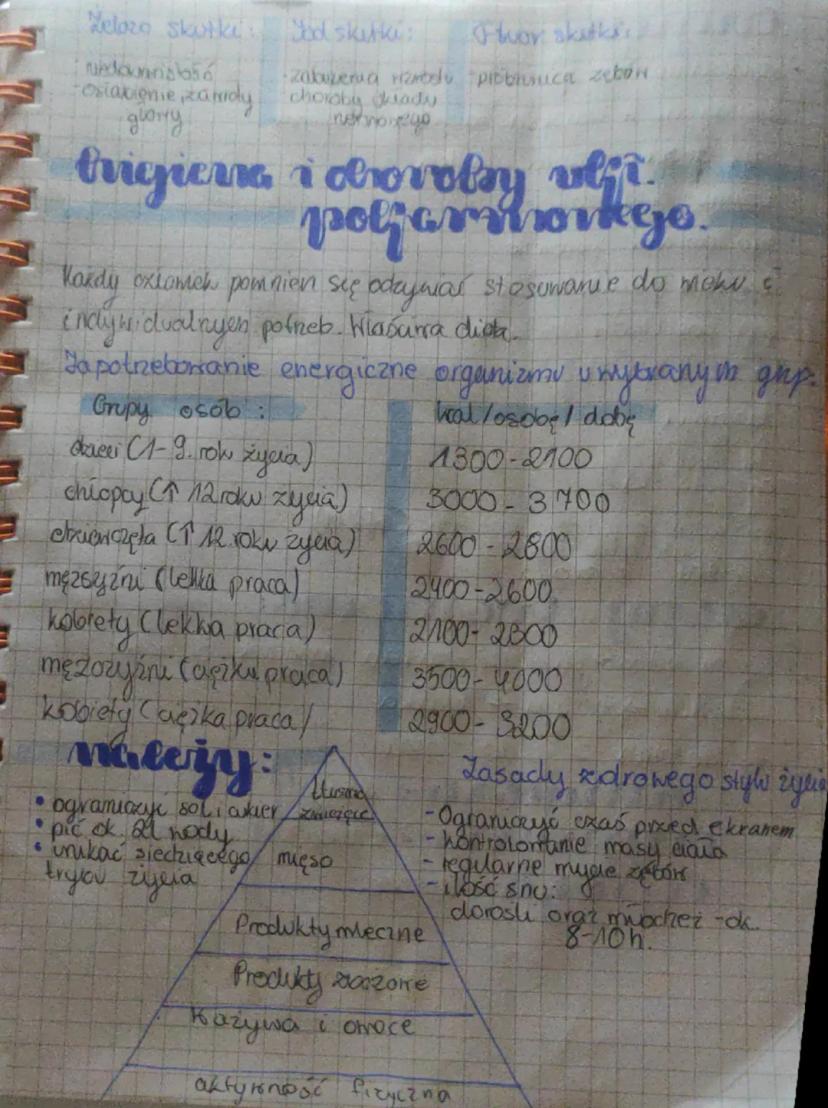 Żelazo skutki: Jod skutki: Fluor skutki:
· niedokrwistość · zaburzenia wzrostu · próchnica zębów
· osłabienie, zawroty · choroby układu
głowy nerwowego
higiena i choroby ukł.
pokarmowego.
Każdy człowiek powinien się odżywiać stosowanie do wieku i
indywidualnych potrzeb. Własna dieta.
Zapotrzebowanie energiczne organizmu u wybranych grup.
Grupy osób: kcal/osobę/dobę
dzieci (1-9. rok życia) 1300-2100
chłopcy (↑ 12 roku życia) 3000-3700
dziewczęta (↑ 12. roku życia) 2600-2800
mężczyźni (lekka praca) 2400-2600
kobiety (lekka praca) 2100-2300
mężczyźni (ciężka praca) 3500-4000
kobiety (ciężka praca) 2900-3200
należy:
Zasady zdrowego stylu życia
• ograniczyć sól i cukier
• pić ok. 2l wody
• unikać siedzącego
trybu życia
Tłuszcze
zwierzęce
mięso
Produkty mleczne
Produkty zbożowe
Warzywa i owoce
aktywność fizyczna
- Ograniczyć czas przed ekranem
- kontrolowanie masy ciała
- regularne mycie zębów
- ilość snu:
dorośli oraz młodzież - ok.
8-10h.